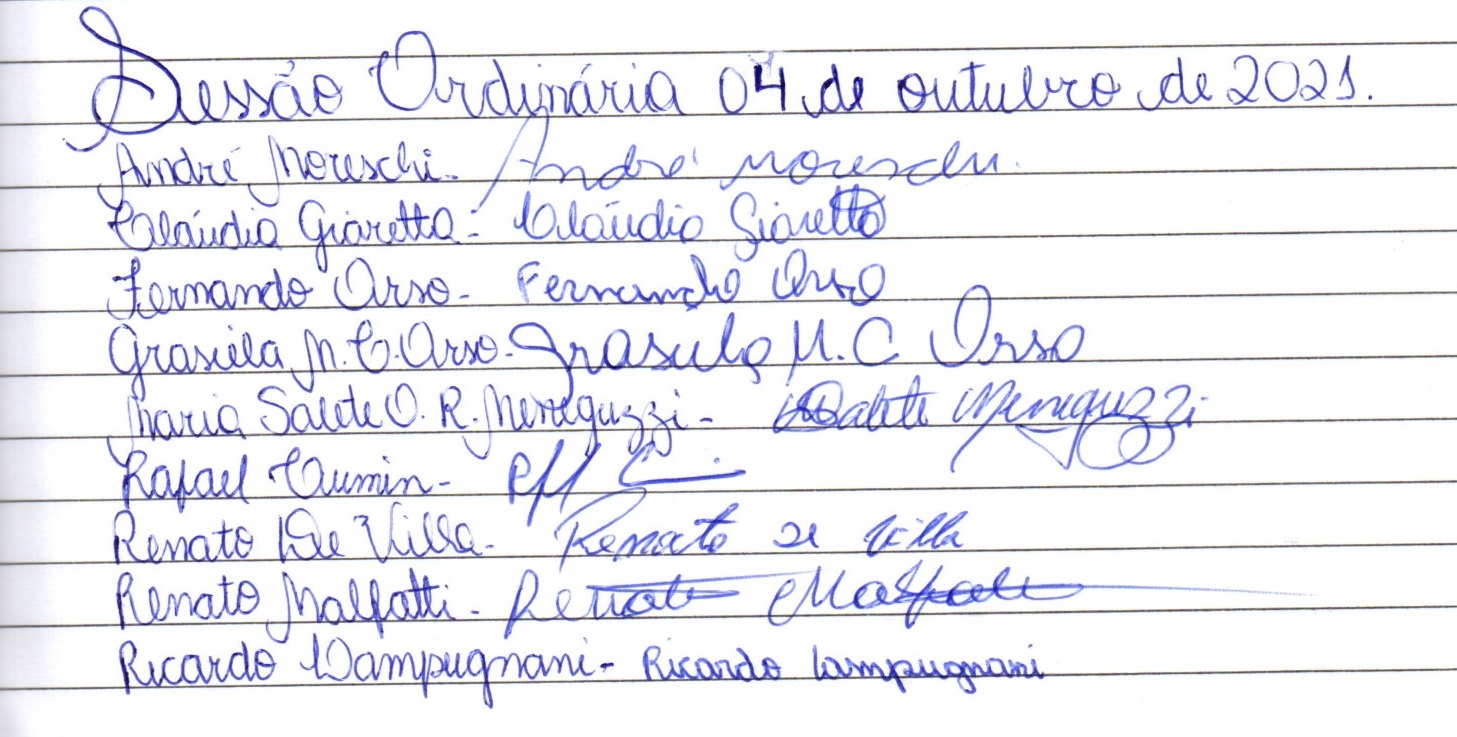 Sessão Ordinária 04 de outubro de 2021.
André Moreschi - André Moreschi.
Claúdia Giaretta - Claúdia Giaretta
Fernando Orso - Fernando Orso
Grasiela M. C. Orso - Grasiela M. C Orso
Maria Salete O. R. Meneguzzi - Salete Meneguzzi
Rafael Cumin -
Renato De Villa - Renato de Villa
Renato Malfatti - Renato Malfatti
Ricardo Lampugnani - Ricardo Lampugnani